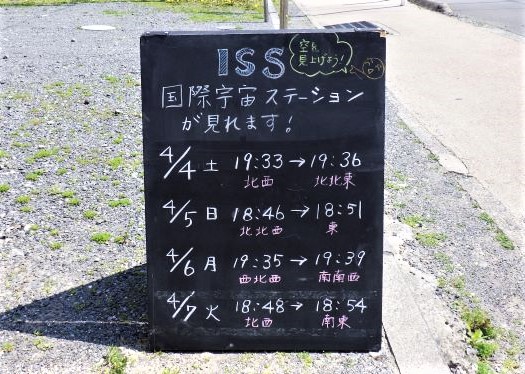 ISS
空を
見上げよう!
国際宇宙ステーション
が見れます!
4/4 土 19:33→19:36
北西 北北東
4/5 日 18:46→18:51
北北西 東
4/6 月 19:35→19:39
西北西 南南西
4/7 火 18:48→18:54
北西 南東